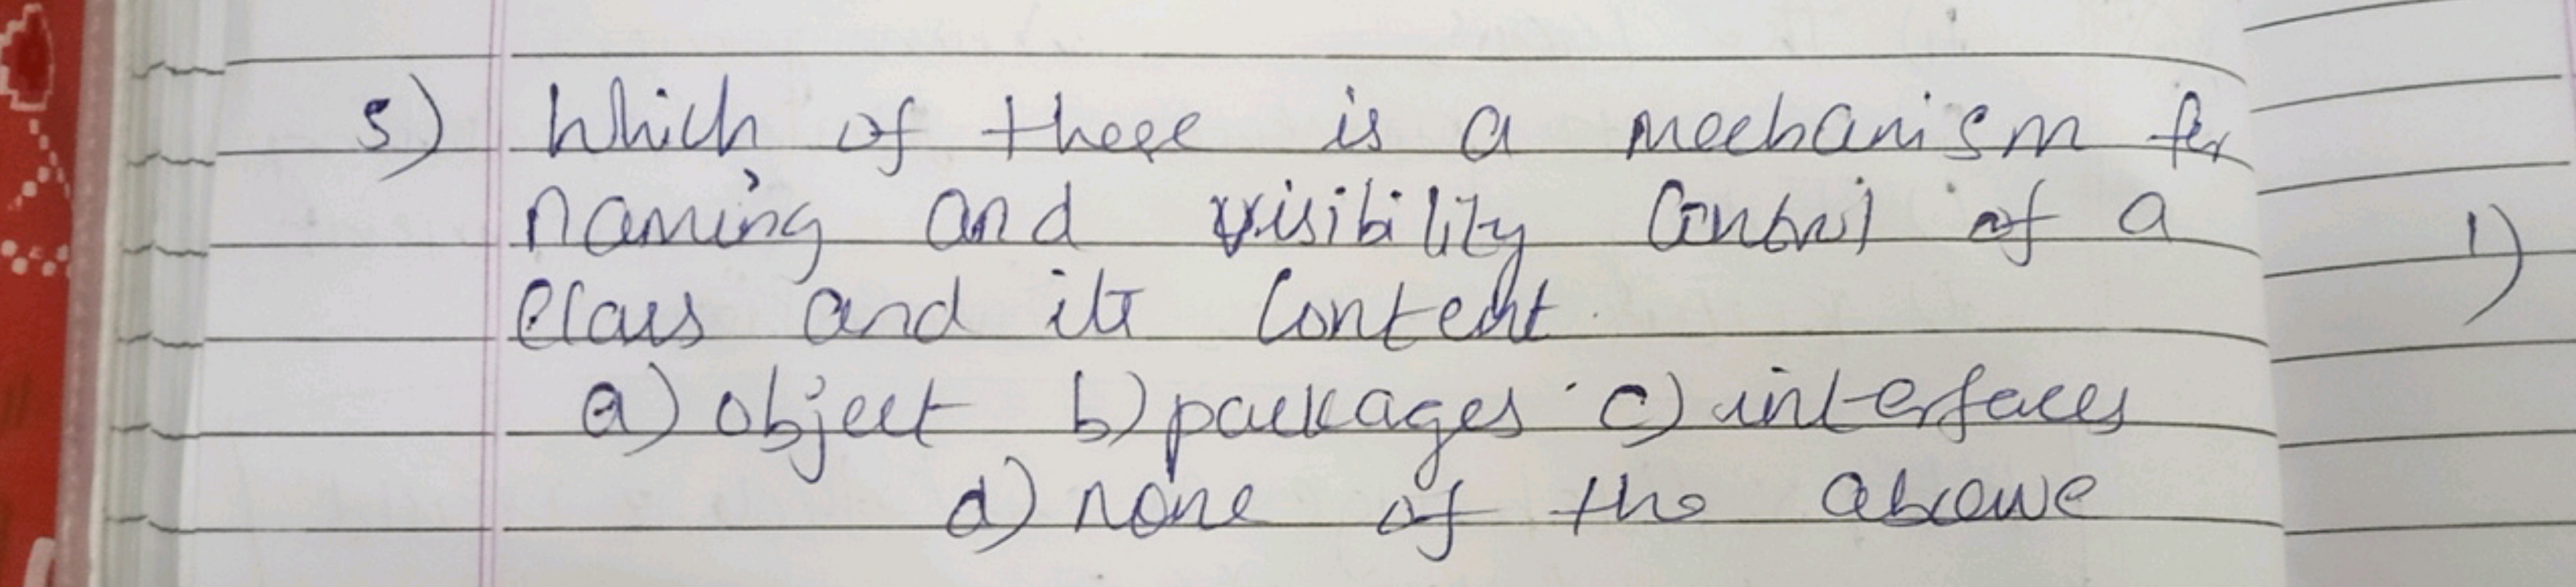 5) Which of these is a mechanism for
naming and visibility Control of a
class and its Content.
a) object b) packages c) interfaces
d) none of the above
1)